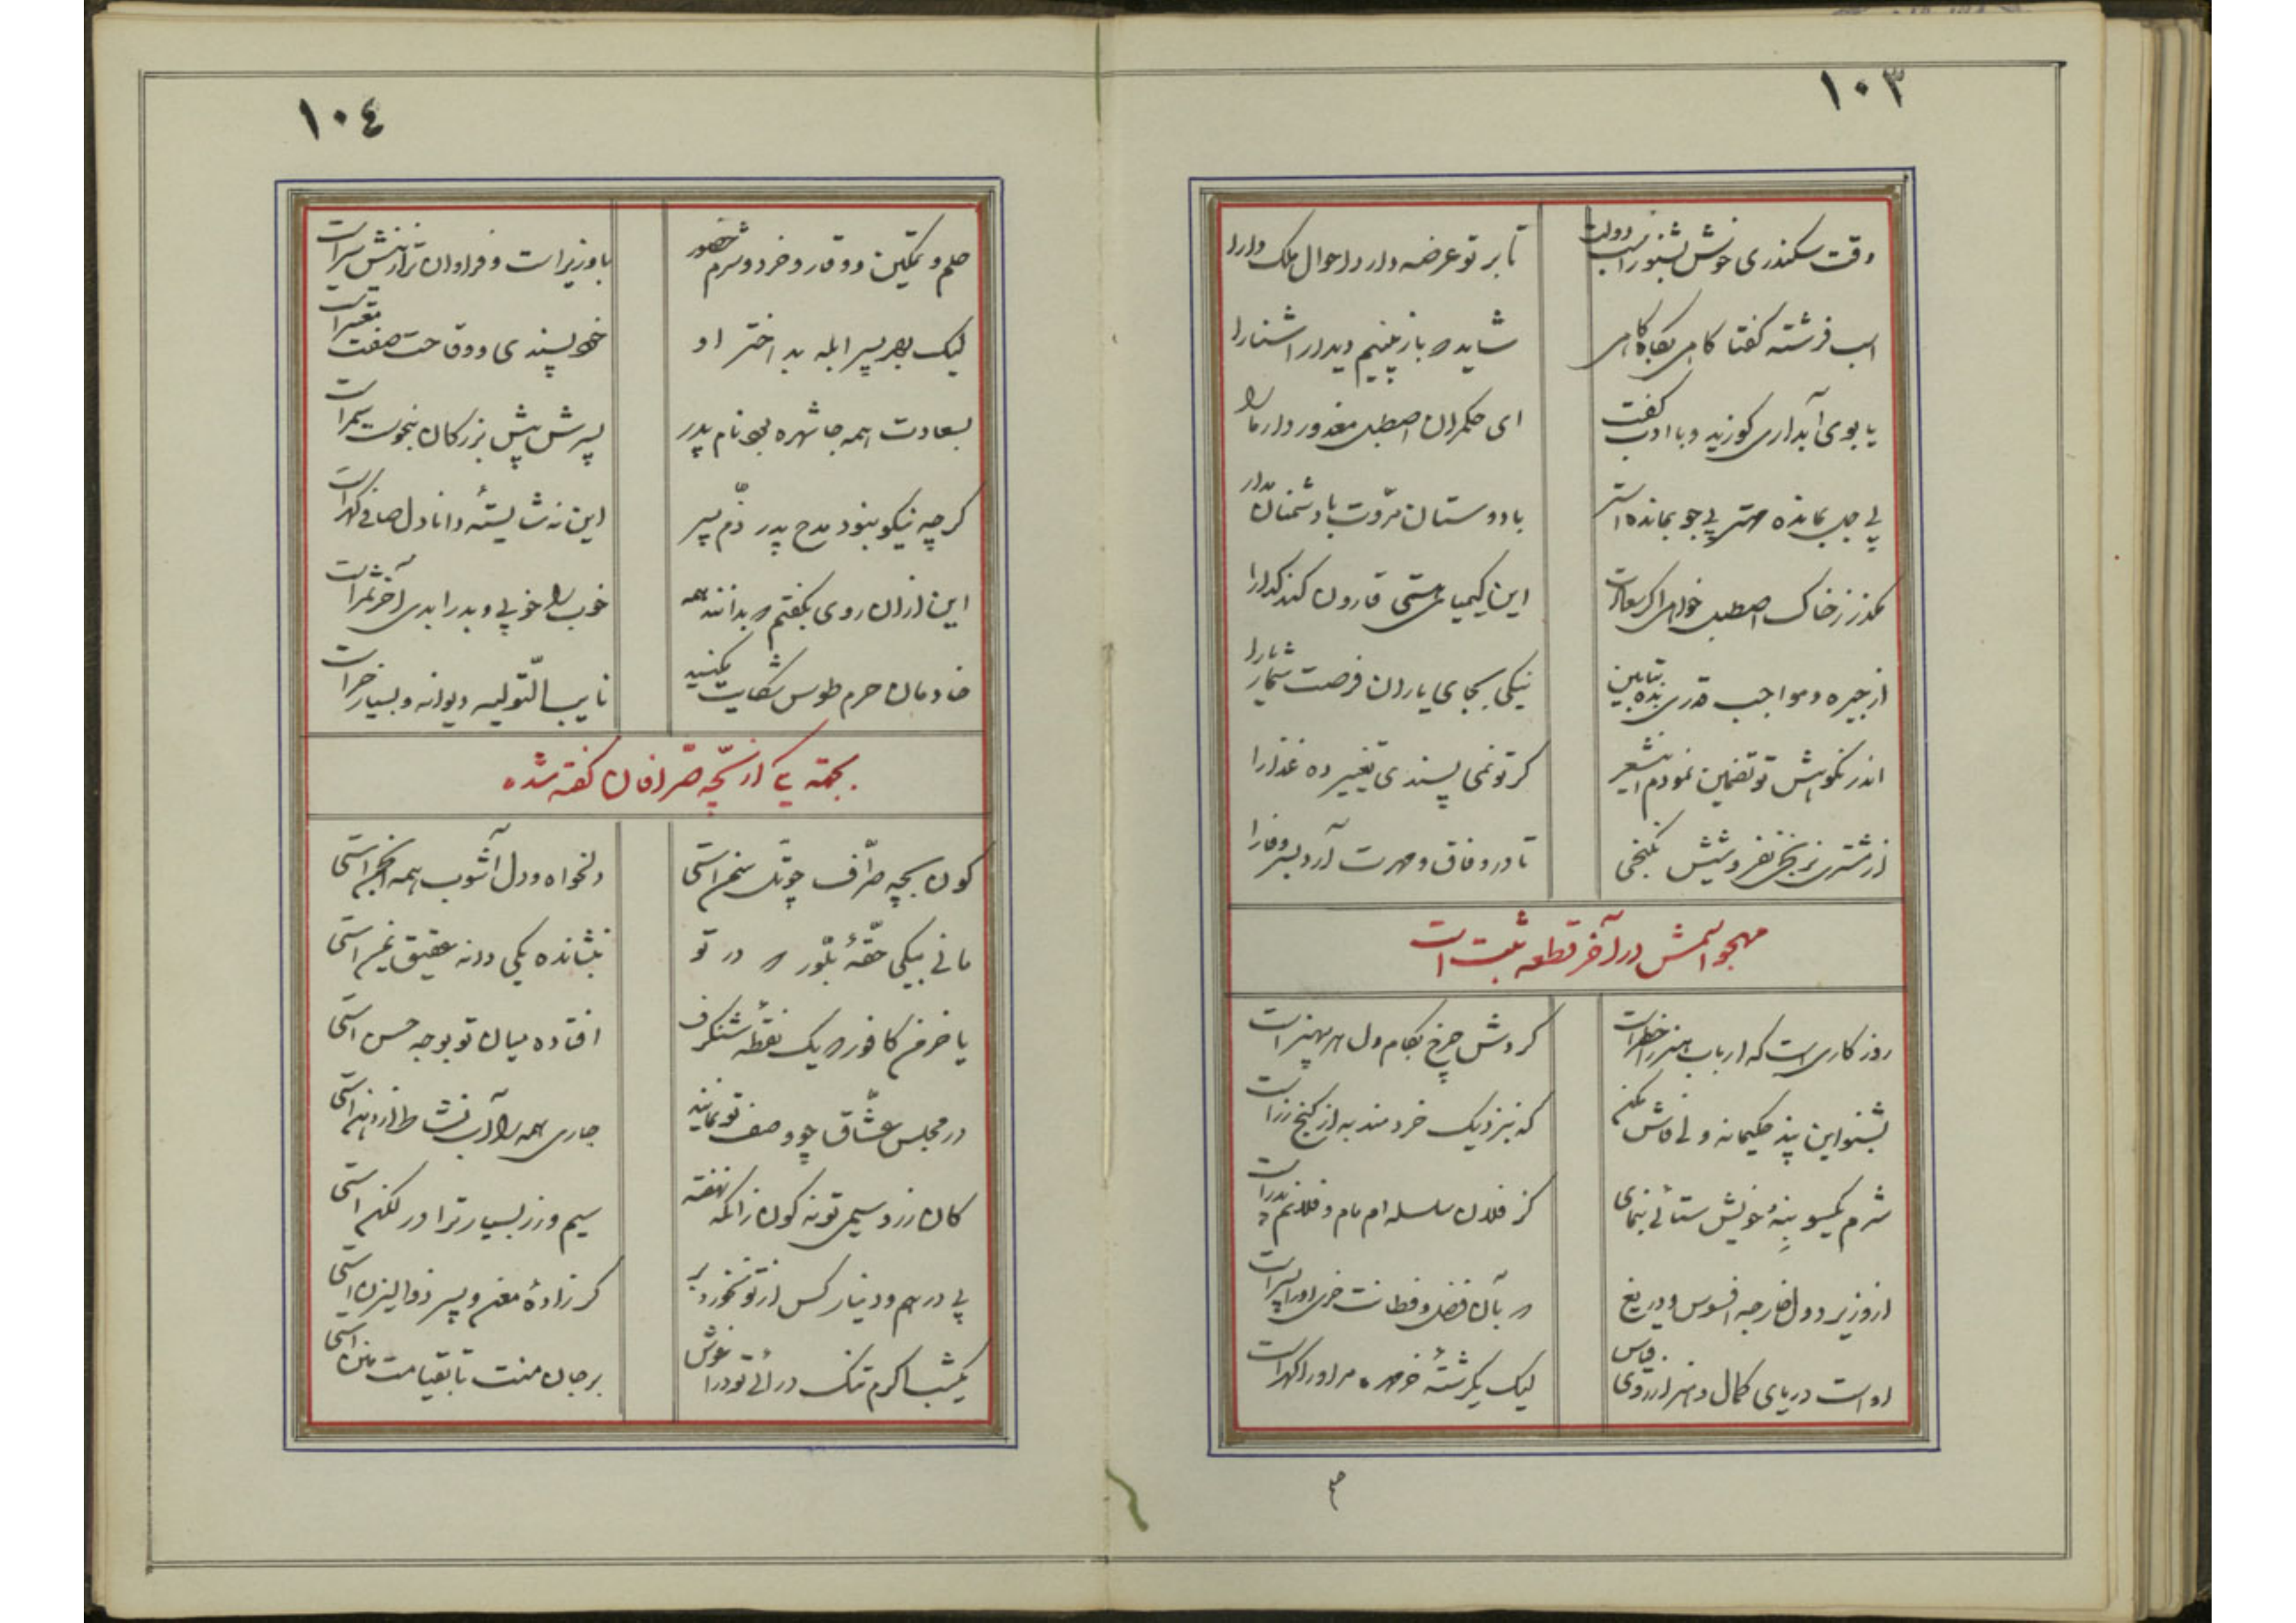 ١٠٣
وقت سکندری خوش بشنو ز اسب دولت
تا بر تو عرضه دارد احوال ملک دارا
اسب فرشته گفتا کامی بکام
شاید که باز بینیم دیدار آشنا را
یابوی آبداری کوزید و با ادب گفت
ای حکمران اصطبل معذور دار ما را
بی جل بمانده مهتر بی جو بمانده استر
با دوستان مروت با دشمنان مدارا
مگذر ز خاک اصطبل خواهی اگر سعادت
این کیمیای هستی قارون کند گدا را
از جیره و مواجب قدری بده بتابین
نیکی بجای یاران فرصت شمار یارا
اندر نکوهش تو تضمین نمودم این شعر
گر تو نمی پسندی تغییر ده غذا را
تا در وفاق و مهرت آرد بسر وفا را
مهجو اسمش در آخر قطعه ثبت است
روزکاری است که ارباب هنر را خطر است
گردش چرخ بکام دل هر بی هنر است
بشنو این پند حکیمانه ولی فاش مکن
که بنزدیک خردمند به از گنج زر است
شرم یکسو بنه و خویش ستائی بنمای
کز فلان سلسله ام مام و فلانم پدر است
از وزیر دول خارجه افسوس و دریغ
که بآن فضل و فطانت خری او را پسر است
او است دریای کمال و هنر از روی قیاس
لیک یکرشته خرمهره مر او را گهر است
١٠٤
حلم و تمکین و وقار و خرد و شرم حضور
با وزیر است و فراوان تر ازینش سیر است
لیک بهر پسر ابله بد اختر او
خود پسندی و وقاحت صفت معتبر است
بسعادت همه جا شهره بود نام پدر
پسرش پیش بزرگان بنحوست سمر است
گرچه نیکو نبود مدح پدر ذم پسر
این نه شایسته دانا دل صافی گهر است
این از آن روی بگفتم که بدانند همه
خوب را خوبی و بد را بدی آخر ثمر است
خادمان حرم طوس شکایت مکنید
نایب التولیه دیوانه و بسیار خر است
بجهة یکی از بچه صرافان گفته شده
کون بچه صراف چو تل سمن استی
دلخواه و دل آشوب همه انجمن استی
مانی بیکی حقهٔ بلور که در تو
بنشانده یکی دانه عقیق یمن استی
یا خرمن کافور که یک نقطه شنگرف
افتاده میان تو بوجه حسن استی
در مجلس عشاق چو وصف تو نمایند
جاری همه را آب نشاط از دهن استی
کان زر و سیمی تو نه کون زانکه نهفته
سیم و زر بسیار ترا در لگن استی
بی درهم و دینار کس از تو نخورد بر
گر زادهٔ معن و پسر ذوالیزن استی
یکشب اگرم تنگ در آئی تو در آغوش
بر جان منت تا بقیامت منن استی